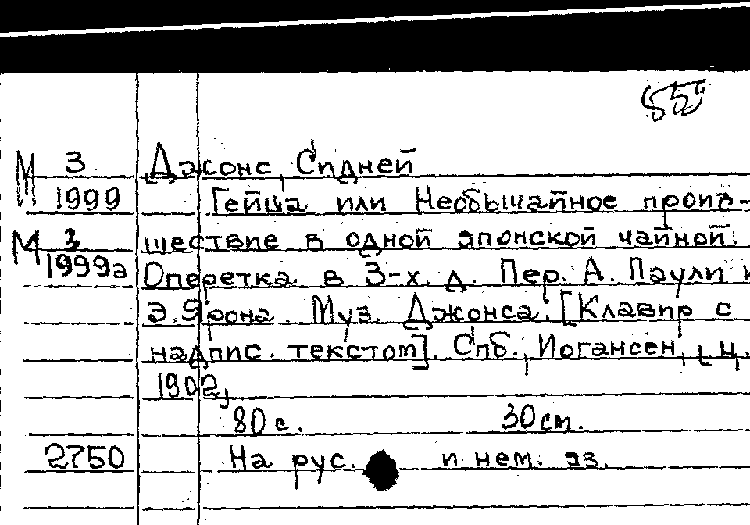 55
М 3 Джонс, Сидней
1999 Гейша или Необычайное проис-
М 3 шествие в одной японской чайной.
1999а Оперетка в 3-х д. Пер. А. Паули и
Э. Ярона. Муз. Джонса. [Клавир с
надпис. текстом]. Спб., Иогансен, ц.
1902,
80 с. 30 см.
2750 На рус. и нем. яз.